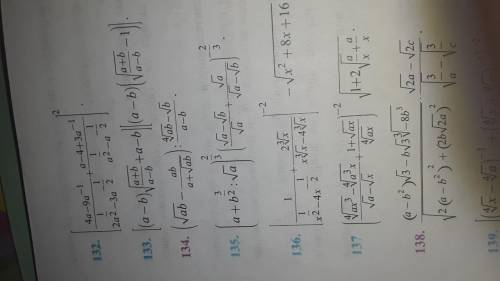 132. [(4a-9a⁻¹)/(2a^(1/2)-3a^(-1/2)) + (a-4+3a⁻¹)/(a^(1/2)-a^(-1/2))]².
133. [(a-b)√((a+b)/(a-b))+a-b][(a-b)(√((a+b)/(a-b))-1)].
134. (√ab - ab/(a+√ab)) : (⁴√ab-√b)/(a-b).
135. [a+b^(3/2) : √a]^(2/3) [(√a-√b)/√a + √a/(√a-√b)]^(2/3).
136. [1/(x^(1/2)-4x^(-1/2)) + 2∛x/(x∛x-4∛x)]⁻² -√(x²+8x+16)
137 [(⁴√ax³-⁴√a³x)/(√a-√x) + (1+√ax)/⁴√ax]⁻² √(1+2√(a/x)+a/x)
138. ((a-b²)√3-b√3∛(-8b³))/√(2(a-b²)²+(2b√2a)²) · (√2a-√2c)/(√(3/a)-√(3/c)).
139.